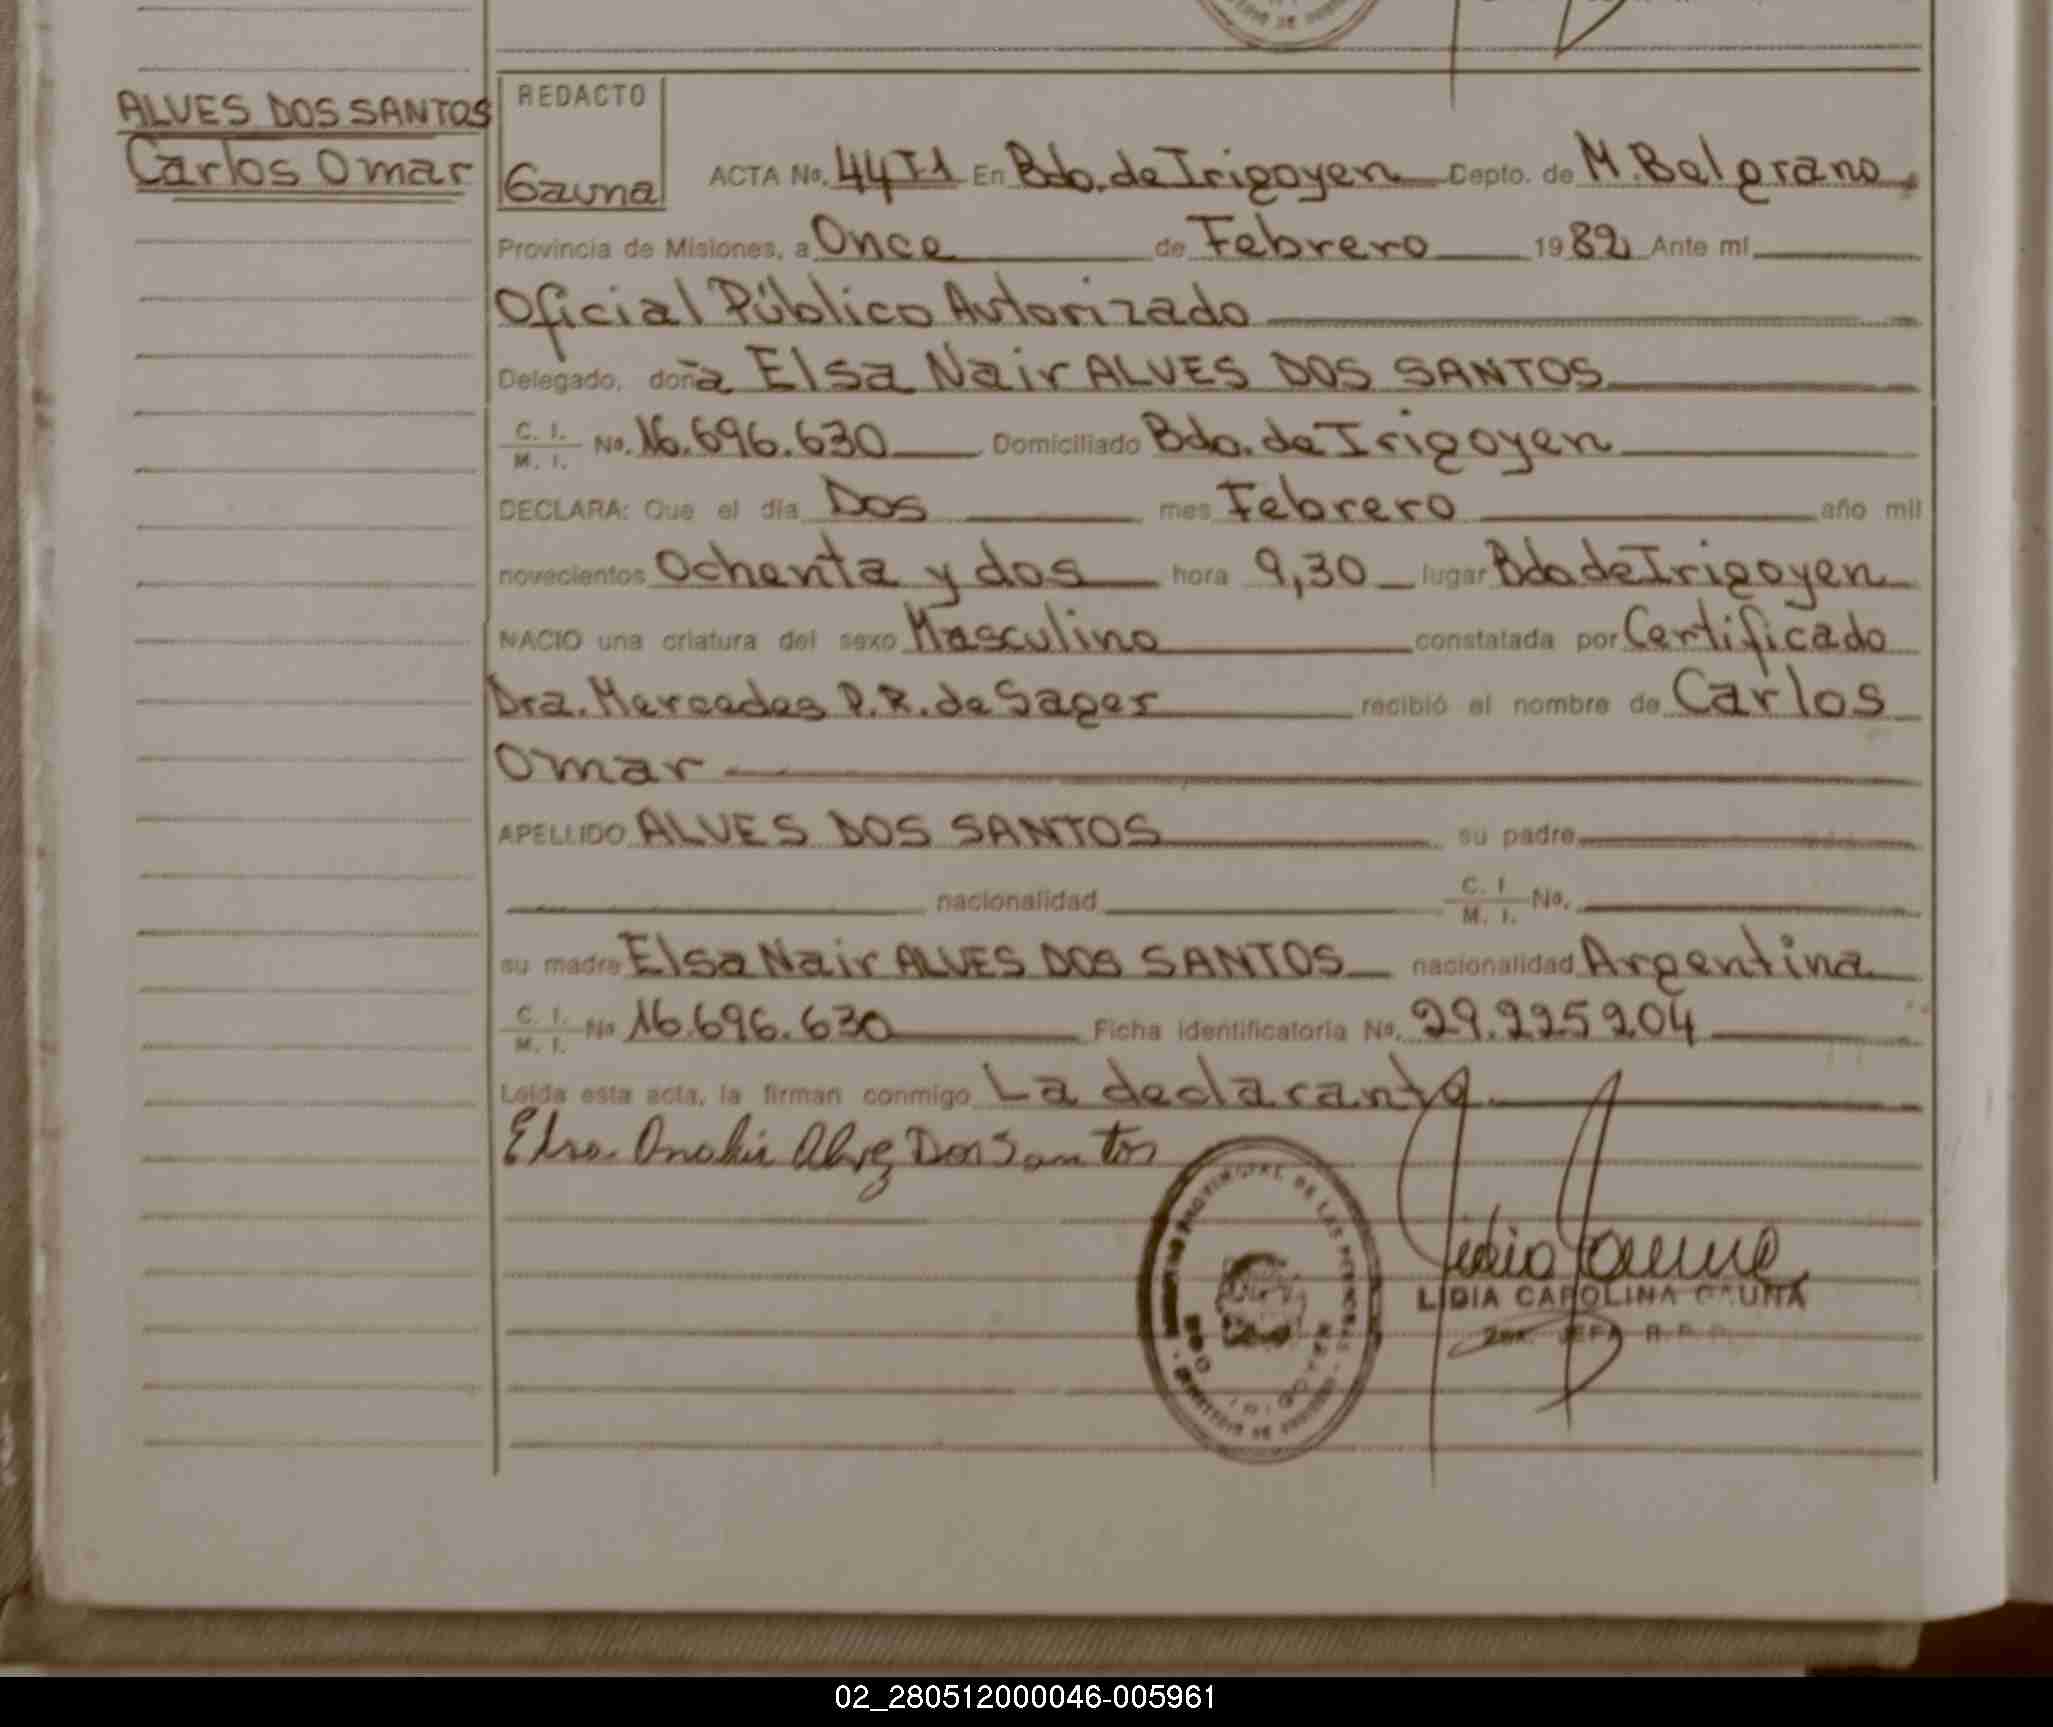 ALVES DOS SANTOS
Carlos Omar
REDACTO
Gauna
ACTA No. 44 T1 En Bdo. de Irigoyen Depto. de M. Belgrano
Provincia de Misiones, a Once de Febrero 1982 Ante mí
Oficial Público Autorizado
Delegado, doña Elsa Nair ALVES DOS SANTOS
C. I. M. I. No. 16.696.630 Domiciliado Bdo. de Irigoyen
DECLARA: Que el día Dos mes Febrero año mil
novecientos Ochenta y dos hora 9,30 lugar Bdo de Irigoyen
NACIO una criatura del sexo Masculino constatada por Certificado
Dra. Mercedes P.R. de Sager recibió el nombre de Carlos
Omar
APELLIDO ALVES DOS SANTOS su padre
nacionalidad C. I. M. I. No.
su madre Elsa Nair ALVES DOS SANTOS nacionalidad Argentina
C. I. M. I. No 16.696.630 Ficha identificatoria No. 29.225204
Leída esta acta, la firman conmigo La declarante
Dos Santos
PROVINCIAL DE LAS PERSONAS
LIDIA CAROLINA GAUNA
JEFA
02_280512000046-005961